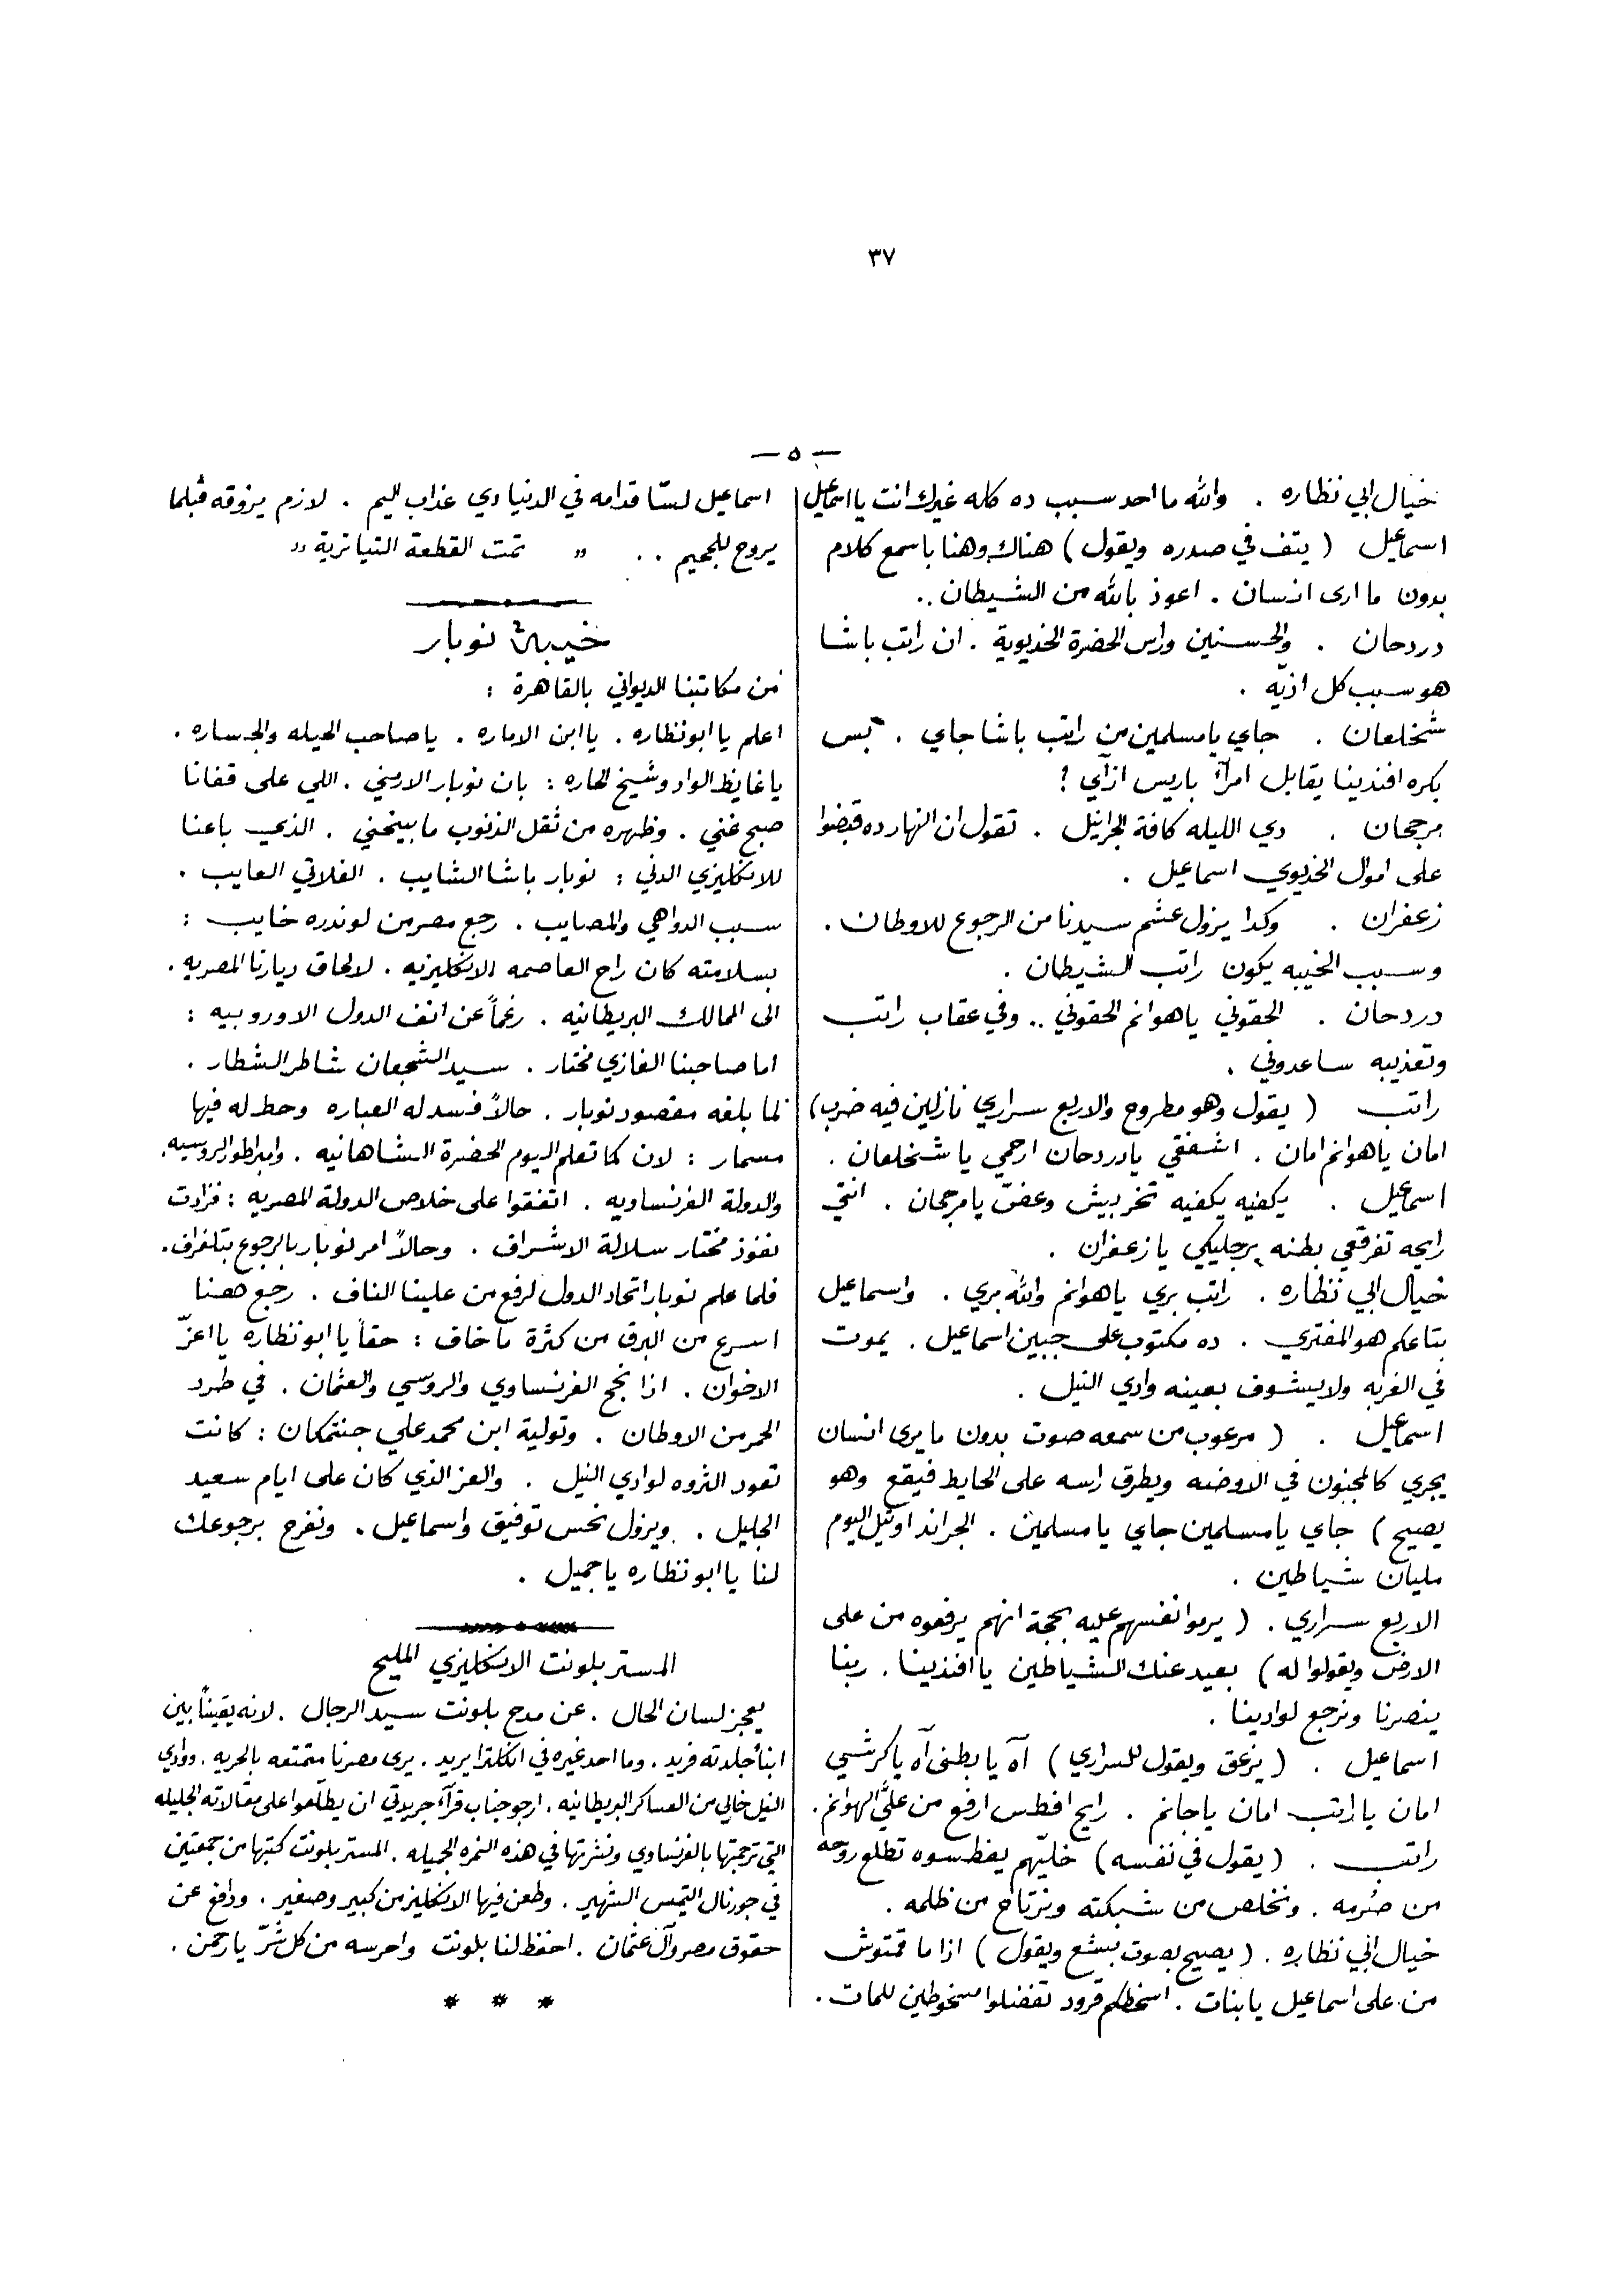 ٣٧
— ٥ —
خيال ابي نظاره . والله ما احد سبب ده كله غيرك انت يا اسماعيل
اسماعيل ( يتف في صدره ويقول ) هناك وهنا باسمع كلام
بدون ما ارى انسان . اعوذ بالله من الشيطان ..
دردحان . والحسنين وراس الحضرة الخديوية . ان راتب باشا
هو سبب كل اذيّه .
شخلعان . جاي يا مسلمين من راتب باشا جاي . بس
بكره افندينا يقابل امرآء باريس ازآي ؟
مرججان . دي الليله كافة الجرانيل . تقول ان النهار ده قبضوا
على اموال الخديوي اسماعيل .
زعفران . وكدا يزول عشم سيدنا من الرجوع للاوطان .
وسبب الخيبه يكون راتب الشيطان .
دردحان . الحقوني ياهوانم الحقوني .. وفي عقاب راتب
وتعذيبه ساعدوني .
راتب ( يقول وهو مطروح والاربع سراري نازلين فيه ضرب )
امان ياهوانم امان . اشفقي يادردحان ارحمي يا شخلعان .
اسماعيل . يكفيه يكفيه تخربيش وعضّ يا مرجان . انتي
رايحه تفرقعي بطنه برجليكي يا زعفران .
خيال ابي نظاره . راتب بري ياهوانم والله بري . واسماعيل
بتاعكم هو المفتري . ده مكتوب على جبين اسماعيل . يموت
في الغربه ولا يشوف بعينه وادي النيل .
اسماعيل . ( مرعوب من سمعه صوت بدون ما يرى انسان
يجري كالمجنون في الاوضه ويطرق راسه على الحايط فيقع وهو
يصيح ) جاي يا مسلمين جاي يا مسلمين . الجراند اوتيل اليوم
مليان شياطين .
الاربع سراري . ( يرموا نفسهم عليه بحجة انهم يرفعوه من على
الارض ويقولوا له ) بعيد عنك الشياطين يا افندينا . ربنا
ينصرنا ونرجع لوادينا .
اسماعيل . ( يزعق ويقول للسراري ) آه يا بطني آه يا كرشي
امان يا راتب امان ياجانم . رايح افطس ارفع من عليّ الهوانم .
راتب . ( يقول في نفسه ) خليّهم يفطسوه تطلع روحه
من صُرمه . ونخلص من شبكته ونرتاح من ظلمه .
خيال ابي نظاره . ( يصيح بصوت بشع ويقول ) اذا ما قمتوش
من على اسماعيل يا بنات . اسخطكم قرود تفضلوا مسخوطين للمات .
اسماعيل لسّا قدامه في الدنيا دي عذاب اليم . لازم يزوقه قبلما
يروح للجحيم .. " تمت القطعة التياترية "
خيبة نوبار
من مكاتبنا الديواني بالقاهرة :
اعلم يا ابو نظاره . يا ابن الاماره . يا صاحب الحيله والجساره .
يا غايظ الواد وشيخ الحاره : بان نوبار الارمني . اللي على قفانا
صبح غني . وظهره من ثقل الذنوب ما بينحني . الذي باعنا
للانكليزي الدني : نوبار باشا الشايب . الفلاتي العايب .
سبب الدواهي والمصايب . رجع مصر من لوندره خايب :
بسلامته كان راح العاصمه الانكليزيه . لالحاق ديارنا المصريه .
الى الممالك البريطانيه . رغماً عن انف الدول الاوروبيه :
اما صاحبنا الغازي مختار . سيد الشجعان شاطر الشطار .
لما بلغه مقصود نوبار . حالاً فسد له العباره وحط له فيها
مسمار : لان كما تعلم اليوم الحضرة الشاهانيه . وامبراطور الروسيه .
والدولة الفرنساويه . اتفقوا على خلاص الدولة المصريه : فزادت
نفوذ مختار سلالة الاشراف . وحالاً امر نوبار بالرجوع بتلغراف .
فلما علم نوبار اتحاد الدول لرفع من علينا الناف . رجع هنا
اسرع من البرق من كثرة ما خاف : حقاً يا ابو نظاره يا اعزّ
الاخوان . اذا نجح الفرنساوي والروسي والعثمان . في طرد
الحمر من الاوطان . وتولية ابن محمد علي جنتمكان : كانت
تعود الثروه لوادي النيل . والعز الذي كان على ايام سعيد
الجليل . ويزول نحس توفيق واسماعيل . ونفرح برجوعك
لنا يا ابو نظاره يا جميل .
المستر بلونت الانكليزي المليح
يعجز لسان الحال . عن مدح بلونت سيد الرجال . لانه يقيناً بين
ابنآ جلدته فريد . وما احد غيره في انكلترا يريد . يرى مصرنا متمتعه بالحريه . ووادي
النيل خالي من العساكر البريطانيه . ارجو جناب قرآء جريدتي ان يطلّعوا على مقالاته الجليله
التي ترجمتها بالفرنساوي ونشرتها في هذه النمره الجميله . المستر بلونت كتبها من جمعتين
في جورنال التيمس الشهير . وطعن فيها الانكليز من كبير وصغير . ودافع عن
حقوق مصر وآل عثمان . احفظ لنا بلونت واحرسه من كل شرّ يا رحمن .
* * *